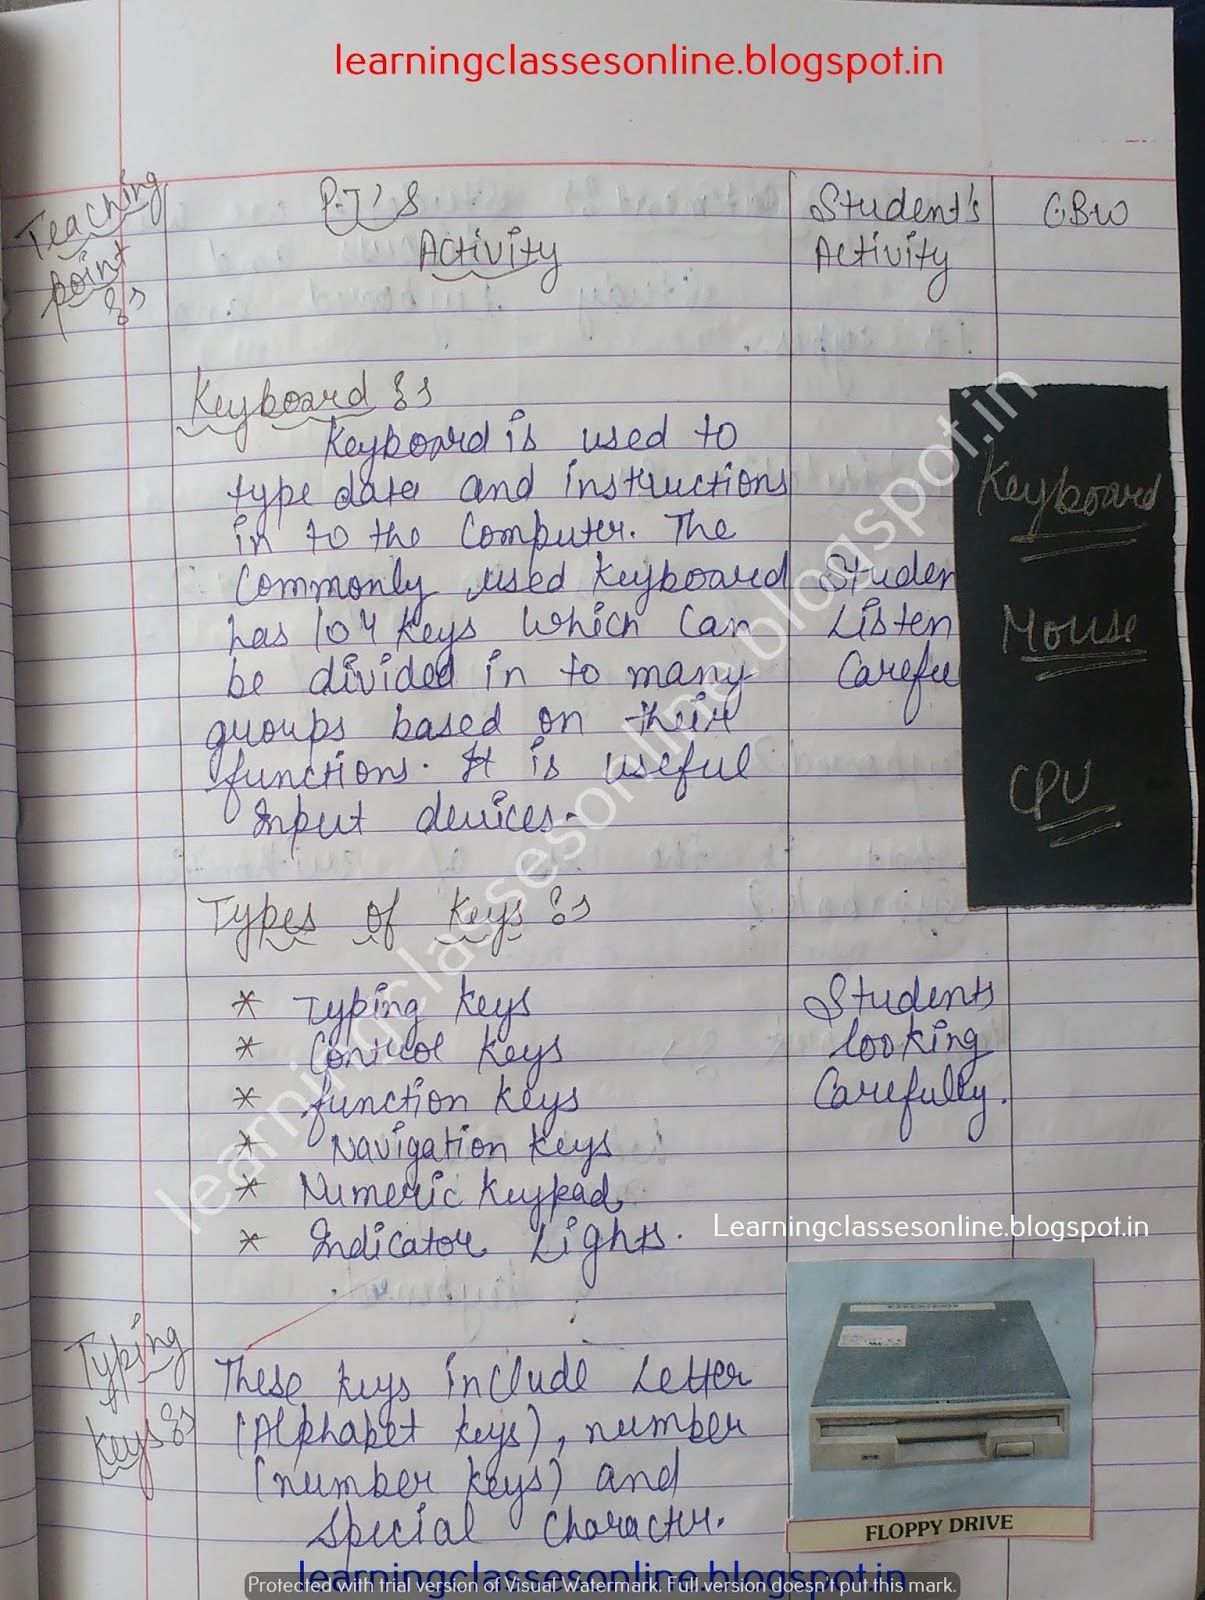 learningclassesonline.blogspot.in
Teaching point :-
P.T'S Activity
Student's Activity
C.B.W
Keyboard :-
Keyboard is used to
type data and instructions
in to the Computer. The
Commonly used Keyboard
has 104 keys which can
be divided in to many
groups based on their
functions. It is useful
Input devices.
Studen
Listen
Carefu
Keyboard
Mouse
CPU
Types of Keys :-
* Typing Keys
* Control Keys
* function Keys
* Navigation Keys
* Numeric Keypad
* Indicator Lights.
Students
looking
Carefully.
Learningclassesonline.blogspot.in
Typing Keys :-
These keys include Letter
(Alphabet keys), number
(number keys) and
Special Character.
FLOPPY DRIVE
learningclassesonline.blogspot.in
learningclassesonline.blogspot.in
Protected with trial version of Visual Watermark. Full version doesn't put this mark.